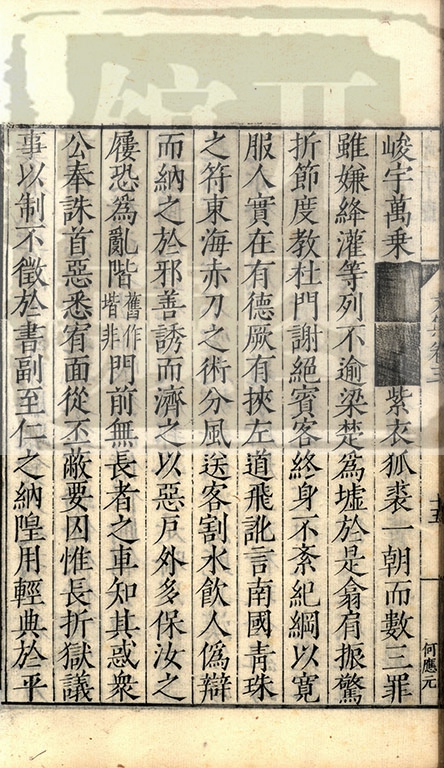 峻宇萬乗■■■紫衣狐裘一朝而數三罪
雖嫌絳灌等列不逾梁楚爲墟於是翕肩振驚
折節度教杜門謝絕賓客終身不紊紀綱以寛
服人實在有德厥有挾左道飛訛言南國青珠
之符東海赤刀之術分風送客割水飲人僞辯
而納之於邪善誘而濟之以惡戸外多保汝之
屨恐爲亂階舊作堦非門前無長者之車知其惑衆
公奉誅首惡悉宥面從丕蔽要囚惟長折獄議
事以制不徵於書副至仁之納隍用輕典於平
何應元